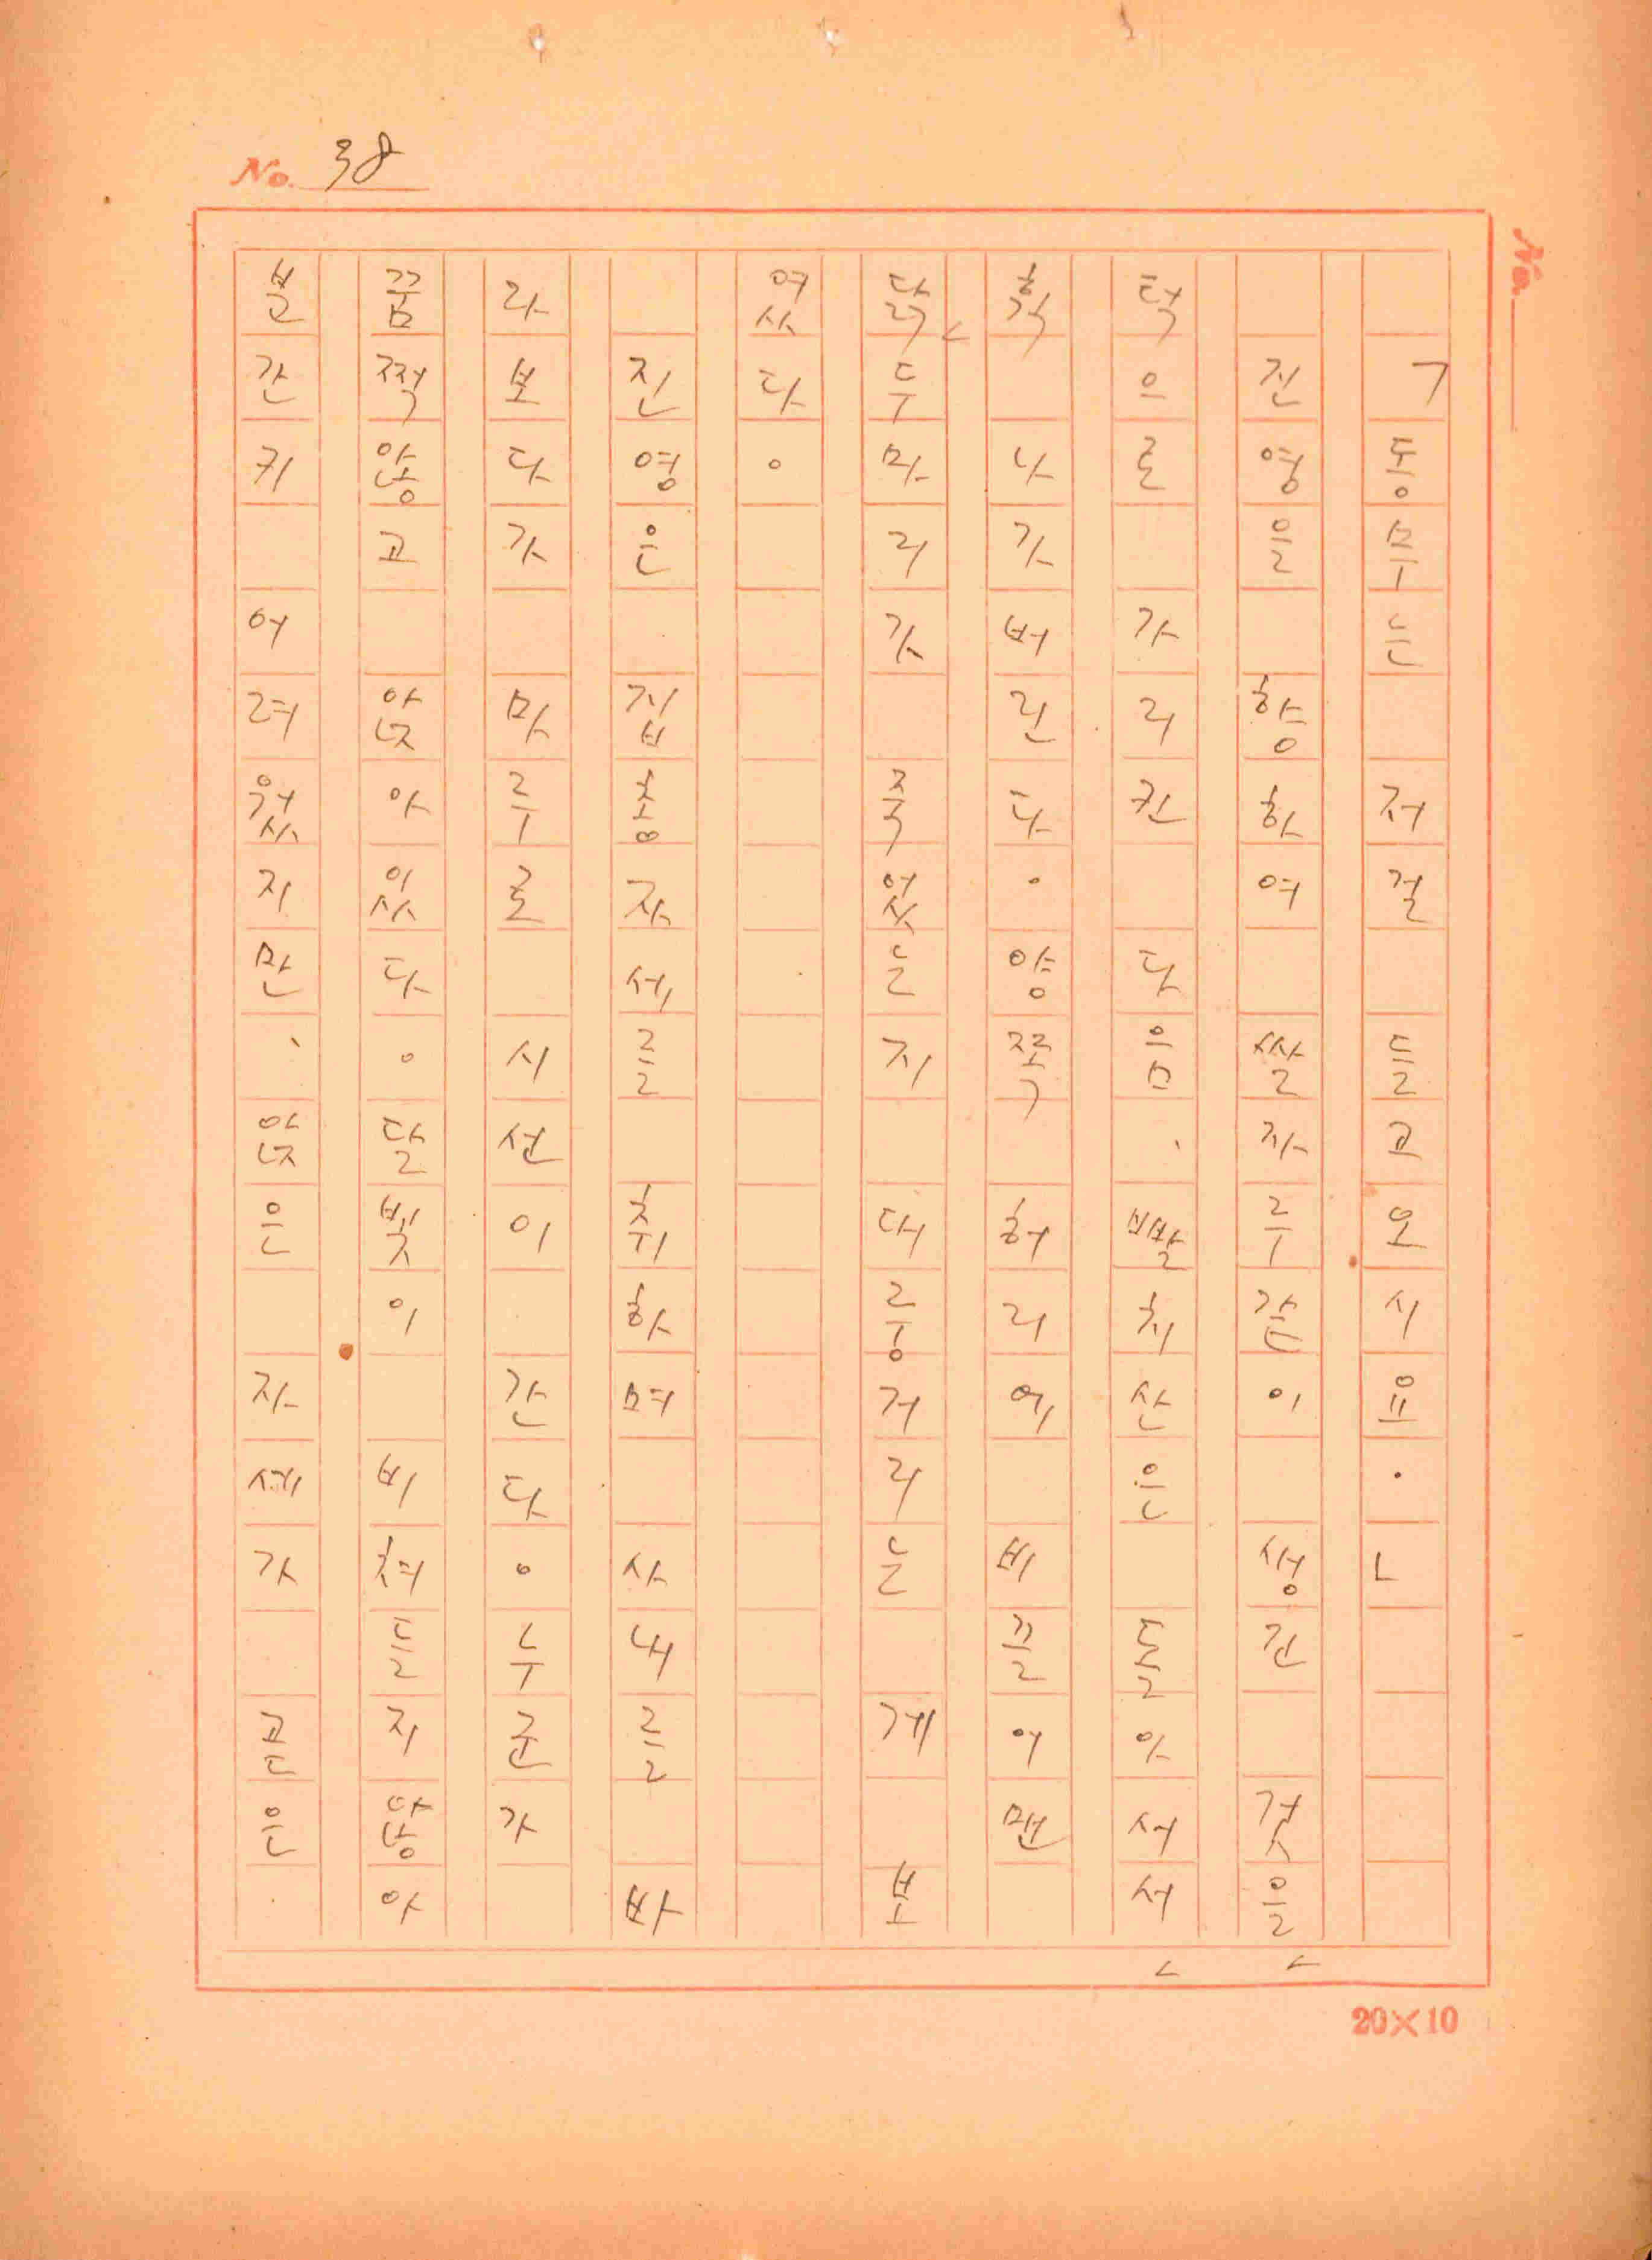 No. 38
「동무는 저걸 들고오시유.」
진영을 향하여 쌀자루같이 생긴 것을
턱으로 가리킨 다음、빨치산은 돌아서서
확 나가버린다. 양쪽 허리에 비끌어맨
닭 두마리가 죽었는지 대룽거리는 게 보
였다.
진영은 집총자세를 취하며 사내를 바
라보다가 마루로 시선이 간다. 누군가
끔쩍않고 앉아있다. 달빛이 비쳐들지않아
분간키 어려웠지만、앉은 자세가 곧은.
No.
20×10